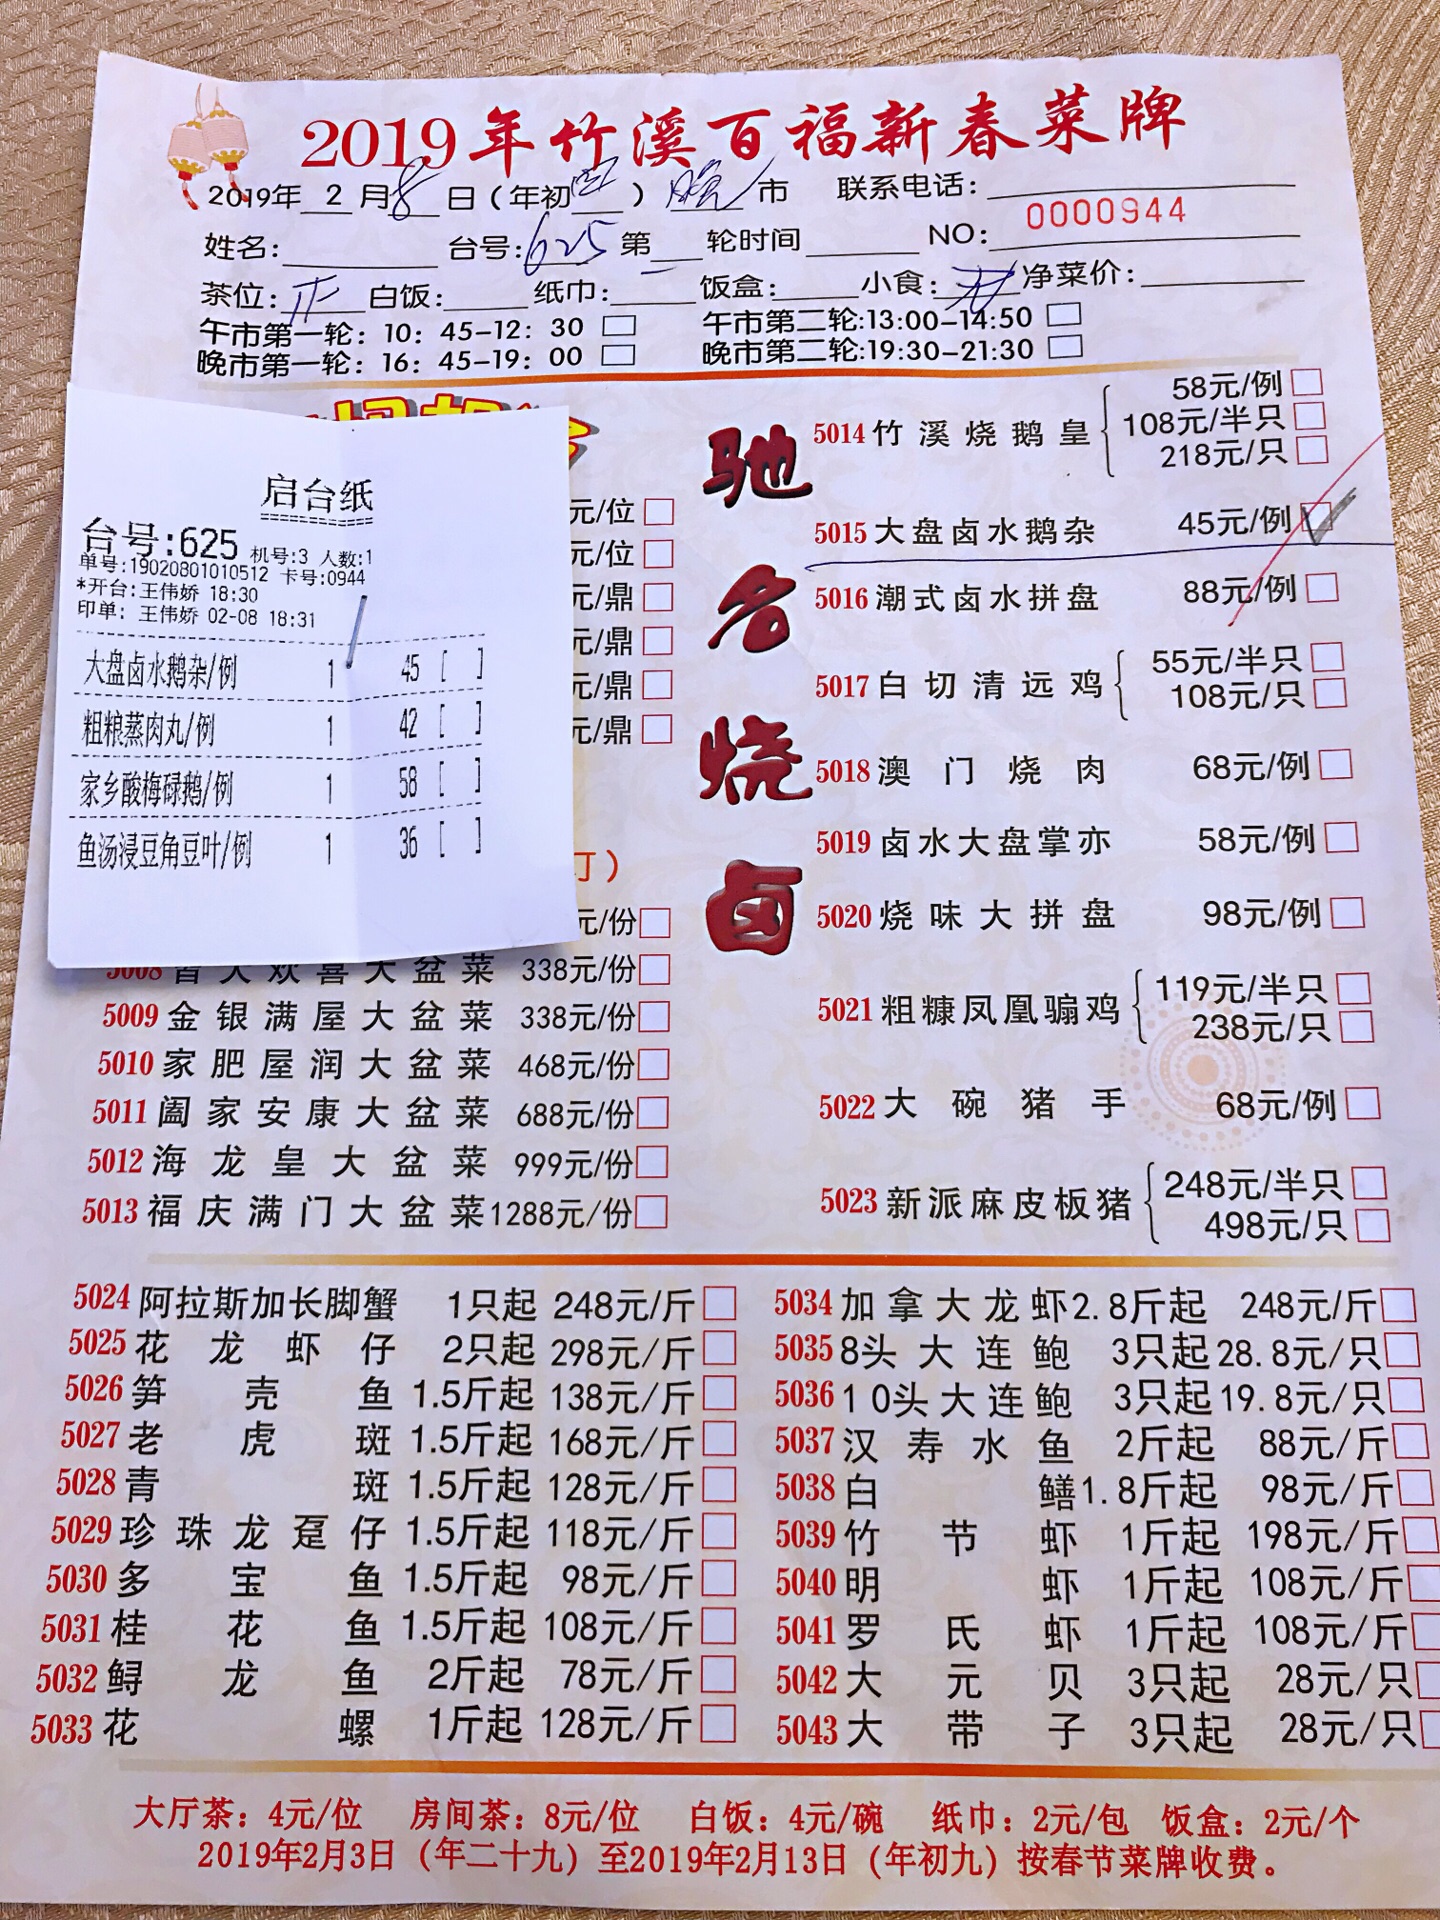 2019年竹溪百福新春菜牌
2019年 2 月8日（年初四）晚市 联系电话：
姓名： 台号：625 第 轮时间 NO： 0000944
茶位： 白饭： 纸巾： 饭盒： 小食： 净菜价：
午市第一轮：10：45-12：30 午市第二轮:13:00-14:50
晚市第一轮：16：45-19：00 晚市第二轮:19:30-21:30
启台纸
台号:625 机号:3 人数:1
单号:19020801010512 卡号:0944
*开台:王伟娇 18:30
印单: 王伟娇 02-08 18:31
大盘卤水鹅杂/例 1 45 [ ]
粗粮蒸肉丸/例 1 42 [ ]
家乡酸梅碌鹅/例 1 58 [ ]
鱼汤浸豆角豆叶/例 1 36 [ ]
元/位
元/位
元/鼎
元/鼎
元/鼎
元/鼎
订）
元/份
5008 皆大欢喜大盆菜 338元/份
5009 金银满屋大盆菜 338元/份
5010 家肥屋润大盆菜 468元/份
5011 阖家安康大盆菜 688元/份
5012 海龙皇大盆菜 999元/份
5013 福庆满门大盆菜 1288元/份
驰名烧卤
5014 竹溪烧鹅皇 58元/例
108元/半只
218元/只
5015 大盘卤水鹅杂 45元/例
5016 潮式卤水拼盘 88元/例
5017 白切清远鸡 55元/半只
108元/只
5018 澳门烧肉 68元/例
5019 卤水大盘掌亦 58元/例
5020 烧味大拼盘 98元/例
5021 粗糠凤凰骟鸡 119元/半只
238元/只
5022 大碗猪手 68元/例
5023 新派麻皮板猪 248元/半只
498元/只
5024 阿拉斯加长脚蟹 1只起 248元/斤
5025 花龙虾仔 2只起 298元/斤
5026 笋壳鱼 1.5斤起 138元/斤
5027 老虎斑 1.5斤起 168元/斤
5028 青斑 1.5斤起 128元/斤
5029 珍珠龙趸仔 1.5斤起 118元/斤
5030 多宝鱼 1.5斤起 98元/斤
5031 桂花鱼 1.5斤起 108元/斤
5032 鲟龙鱼 2斤起 78元/斤
5033 花螺 1斤起 128元/斤
5034 加拿大龙虾 2.8斤起 248元/斤
5035 8头大连鲍 3只起 28.8元/只
5036 10头大连鲍 3只起 19.8元/只
5037 汉寿水鱼 2斤起 88元/斤
5038 白鳝 1.8斤起 98元/斤
5039 竹节虾 1斤起 198元/斤
5040 明虾 1斤起 108元/斤
5041 罗氏虾 1斤起 108元/斤
5042 大元贝 3只起 28元/只
5043 大带子 3只起 28元/只
大厅茶：4元/位 房间茶：8元/位 白饭：4元/碗 纸巾：2元/包 饭盒：2元/个
2019年2月3日（年二十九）至2019年2月13日（年初九）按春节菜牌收费。